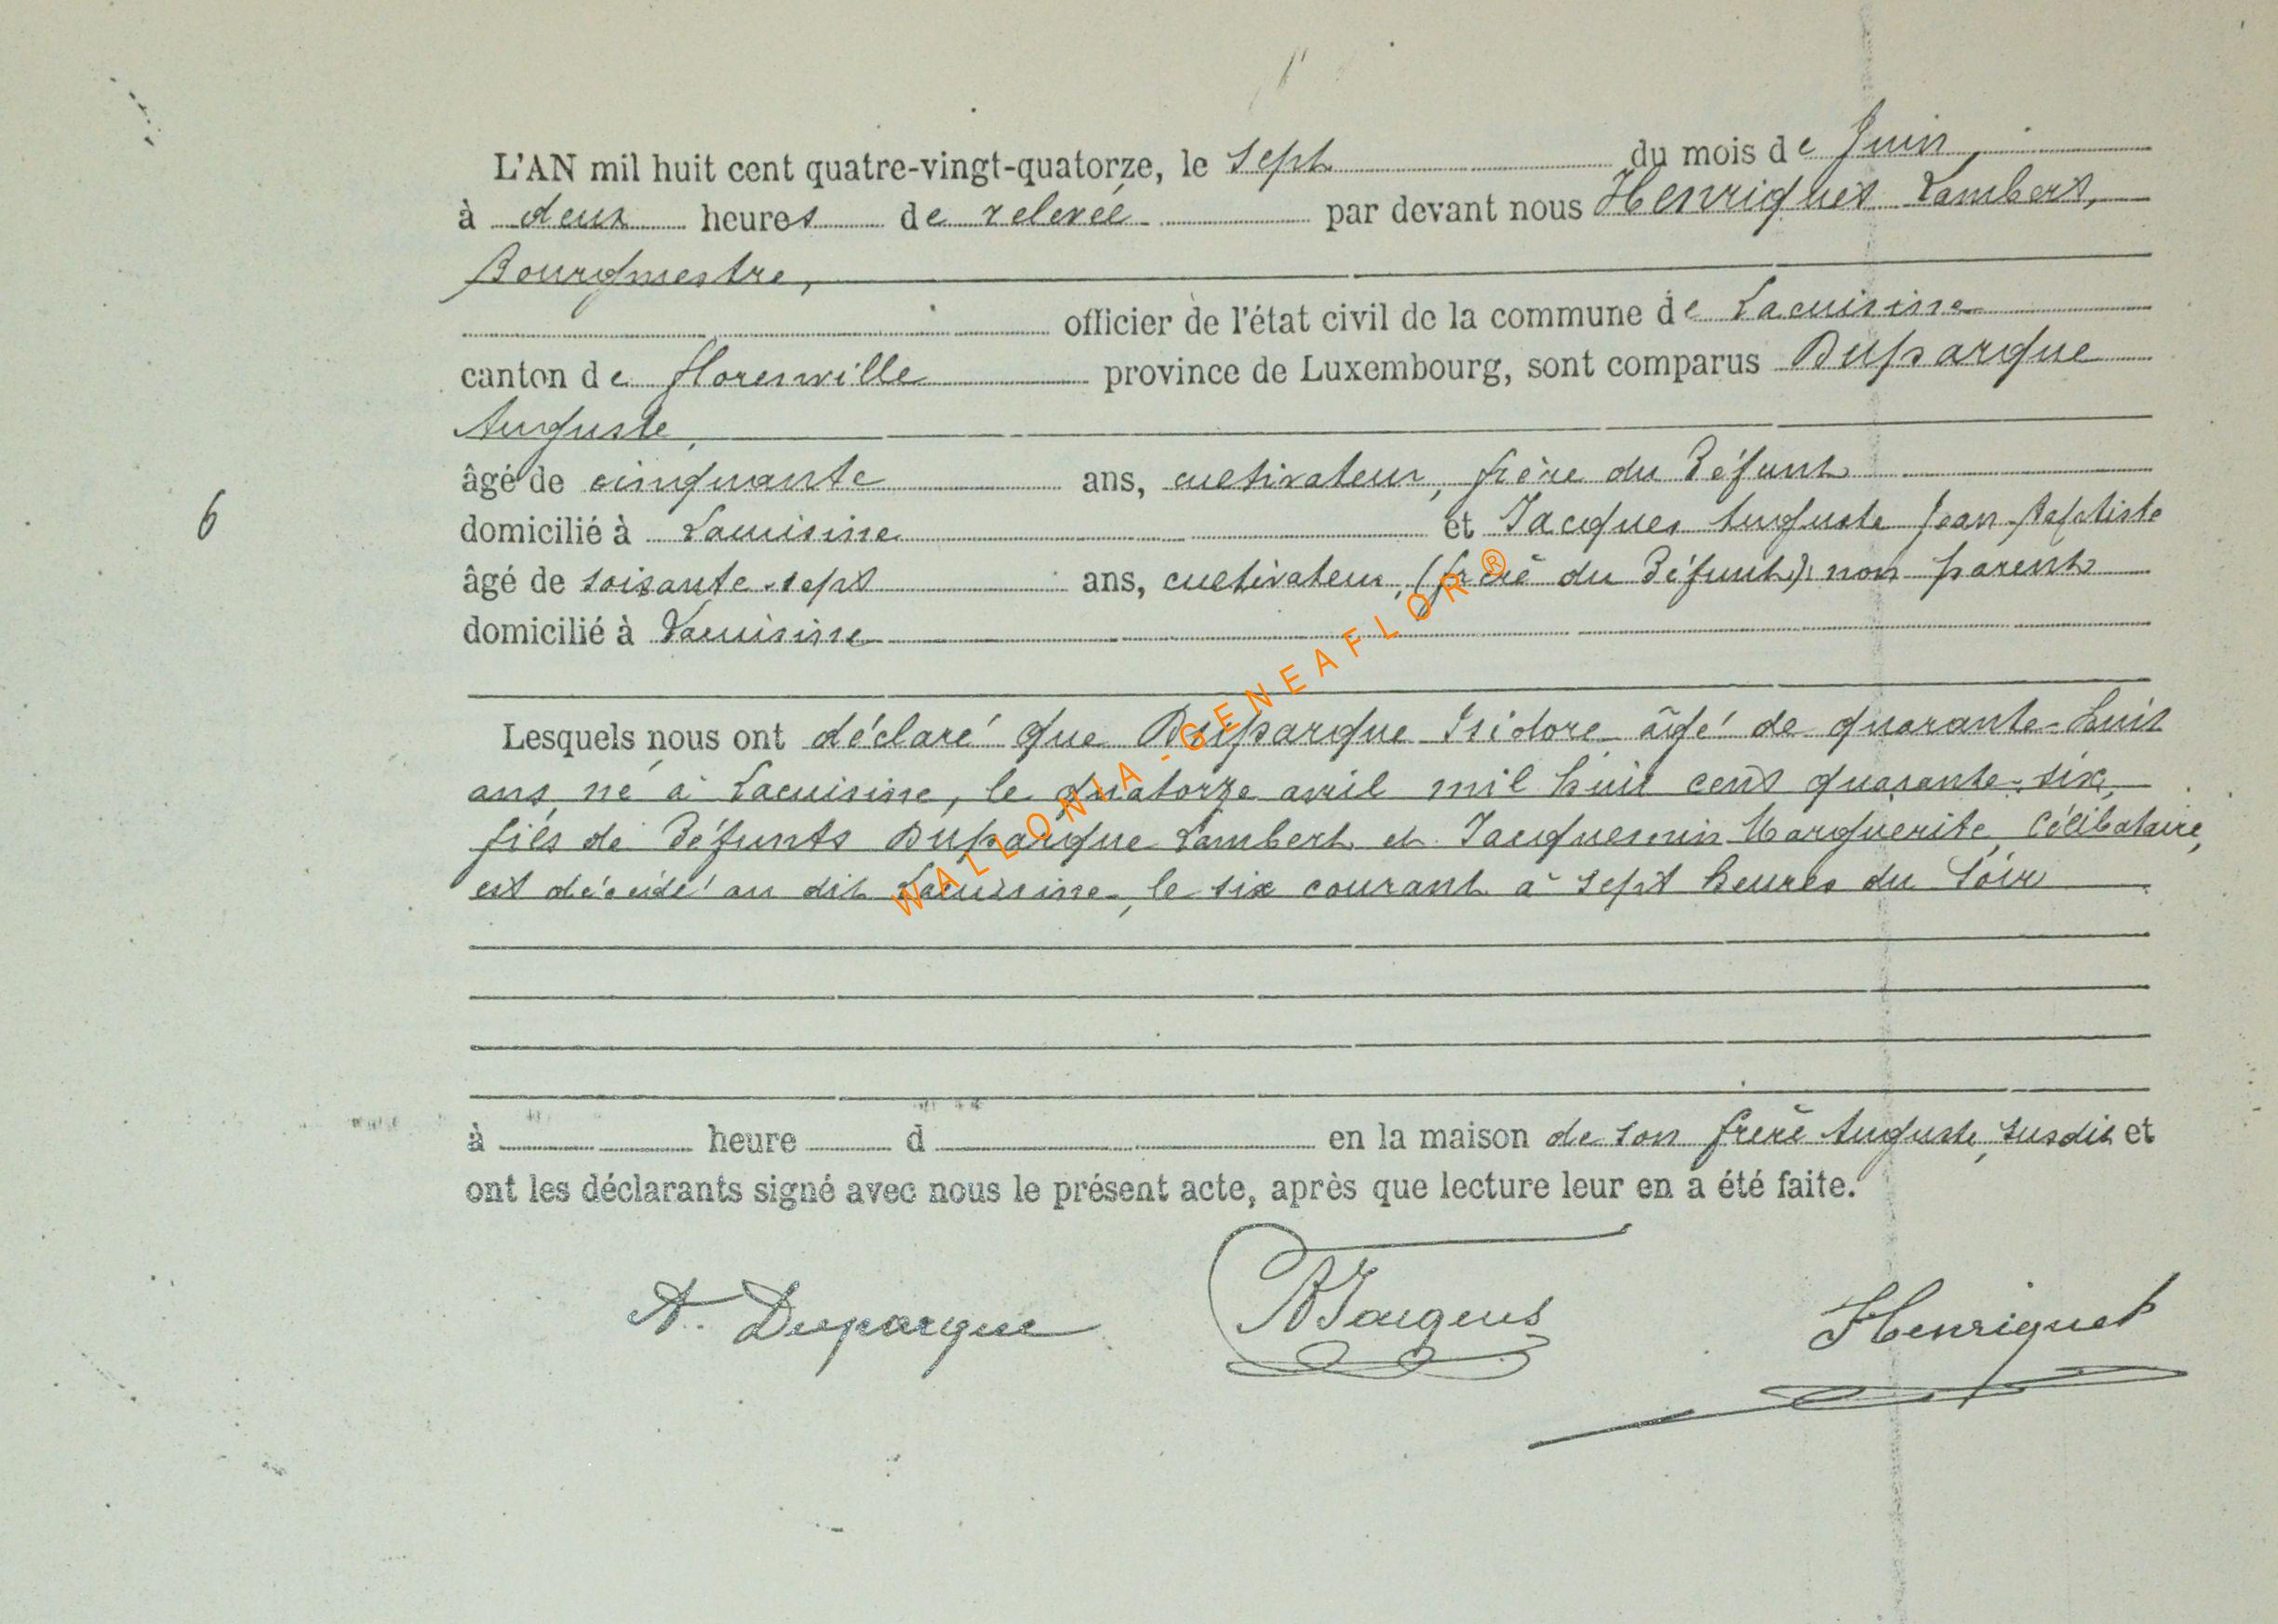 L'AN mil huit cent quatre-vingt-quatorze, le sept du mois de Juin,
à deux heures de relevée par devant nous Henriquet Lambert,
Bourgmestre,
officier de l'état civil de la commune de Lacuisine
canton de Florenville province de Luxembourg, sont comparus Duparque
Auguste,
âgé de cinquante ans, cultivateur, frère du défunt
domicilié à Lacuisine et Jacques Auguste Jean-Baptiste
6
âgé de soixante-sept ans, cultivateur, (frère du défunt) non parent
domicilié à Lacuisine
Lesquels nous ont déclaré que Duparque Isidore âgé de quarante-huit
ans, né à Lacuisine, le quatorze avril mil huit cent quarante-six,
fils de défunts Duparque Lambert et Jacquemin Marguerite, Célibataire,
est décédé au dit Lacuisine, le six courant à sept heures du soir
à heure d en la maison de son frère Auguste, susdit et
ont les déclarants signé avec nous le présent acte, après que lecture leur en a été faite.
A. Duparque Henriquet
WALLONIA-GENEAFLOR®